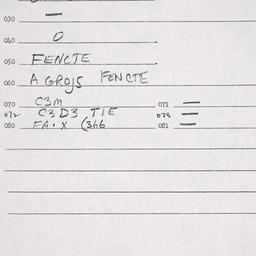 030 —
040 O
050 FENCTE
060 A GROJS FENCTE
070 C3M 071 —
072 C3D3 TIE 073 —
080 FA·X (366 081 —